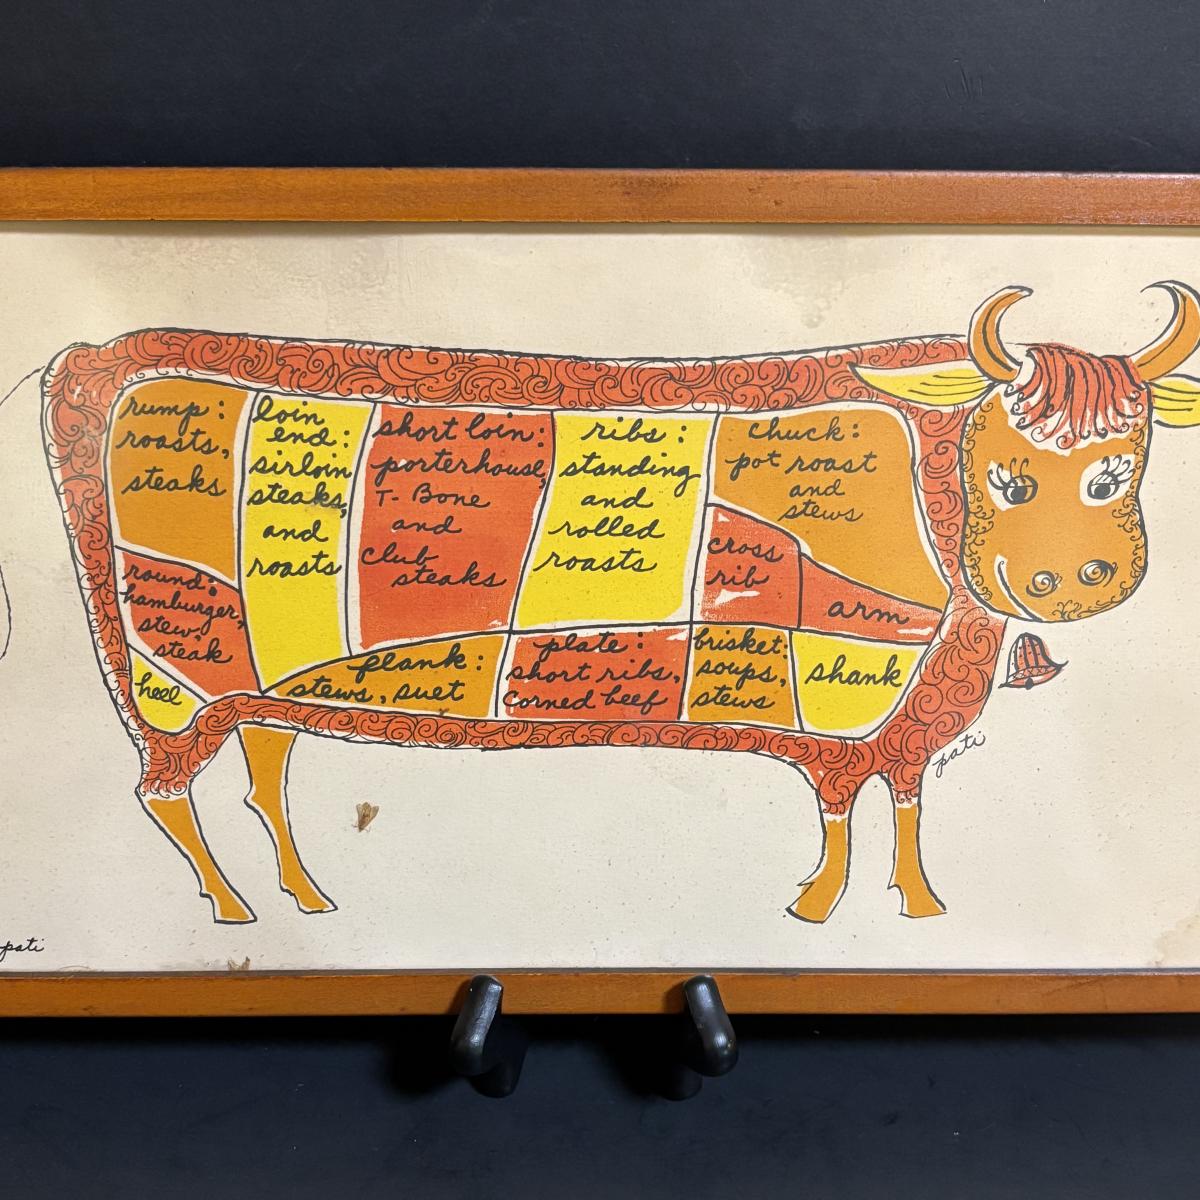 rump:
roasts,
steaks
loin
end:
sirloin
steaks,
and
roasts
short loin:
porterhouse,
T-Bone
and
club
steaks
ribs:
standing
and
rolled
roasts
chuck:
pot roast
and
stews
cross
rib
arm
round:
hamburger,
stew,
steak
heel
flank:
stews, suet
plate:
short ribs,
corned beef
brisket:
soups,
stews
shank
pati
pati